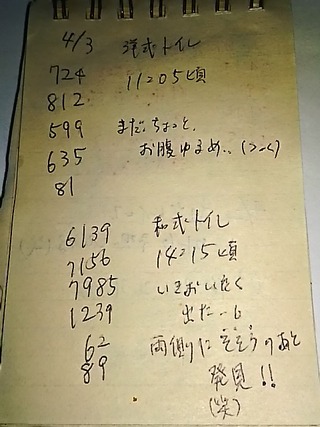 4/3 洋式トイレ
724 11:05頃
812
599 まだ、ちょっと、
635 お腹ゆるめ‥
81
6139 和式トイレ
7156 14:15頃
7985 いきおいよく
1239 出た‥
62 両側にそそうのあと
89 発見!!
(笑)